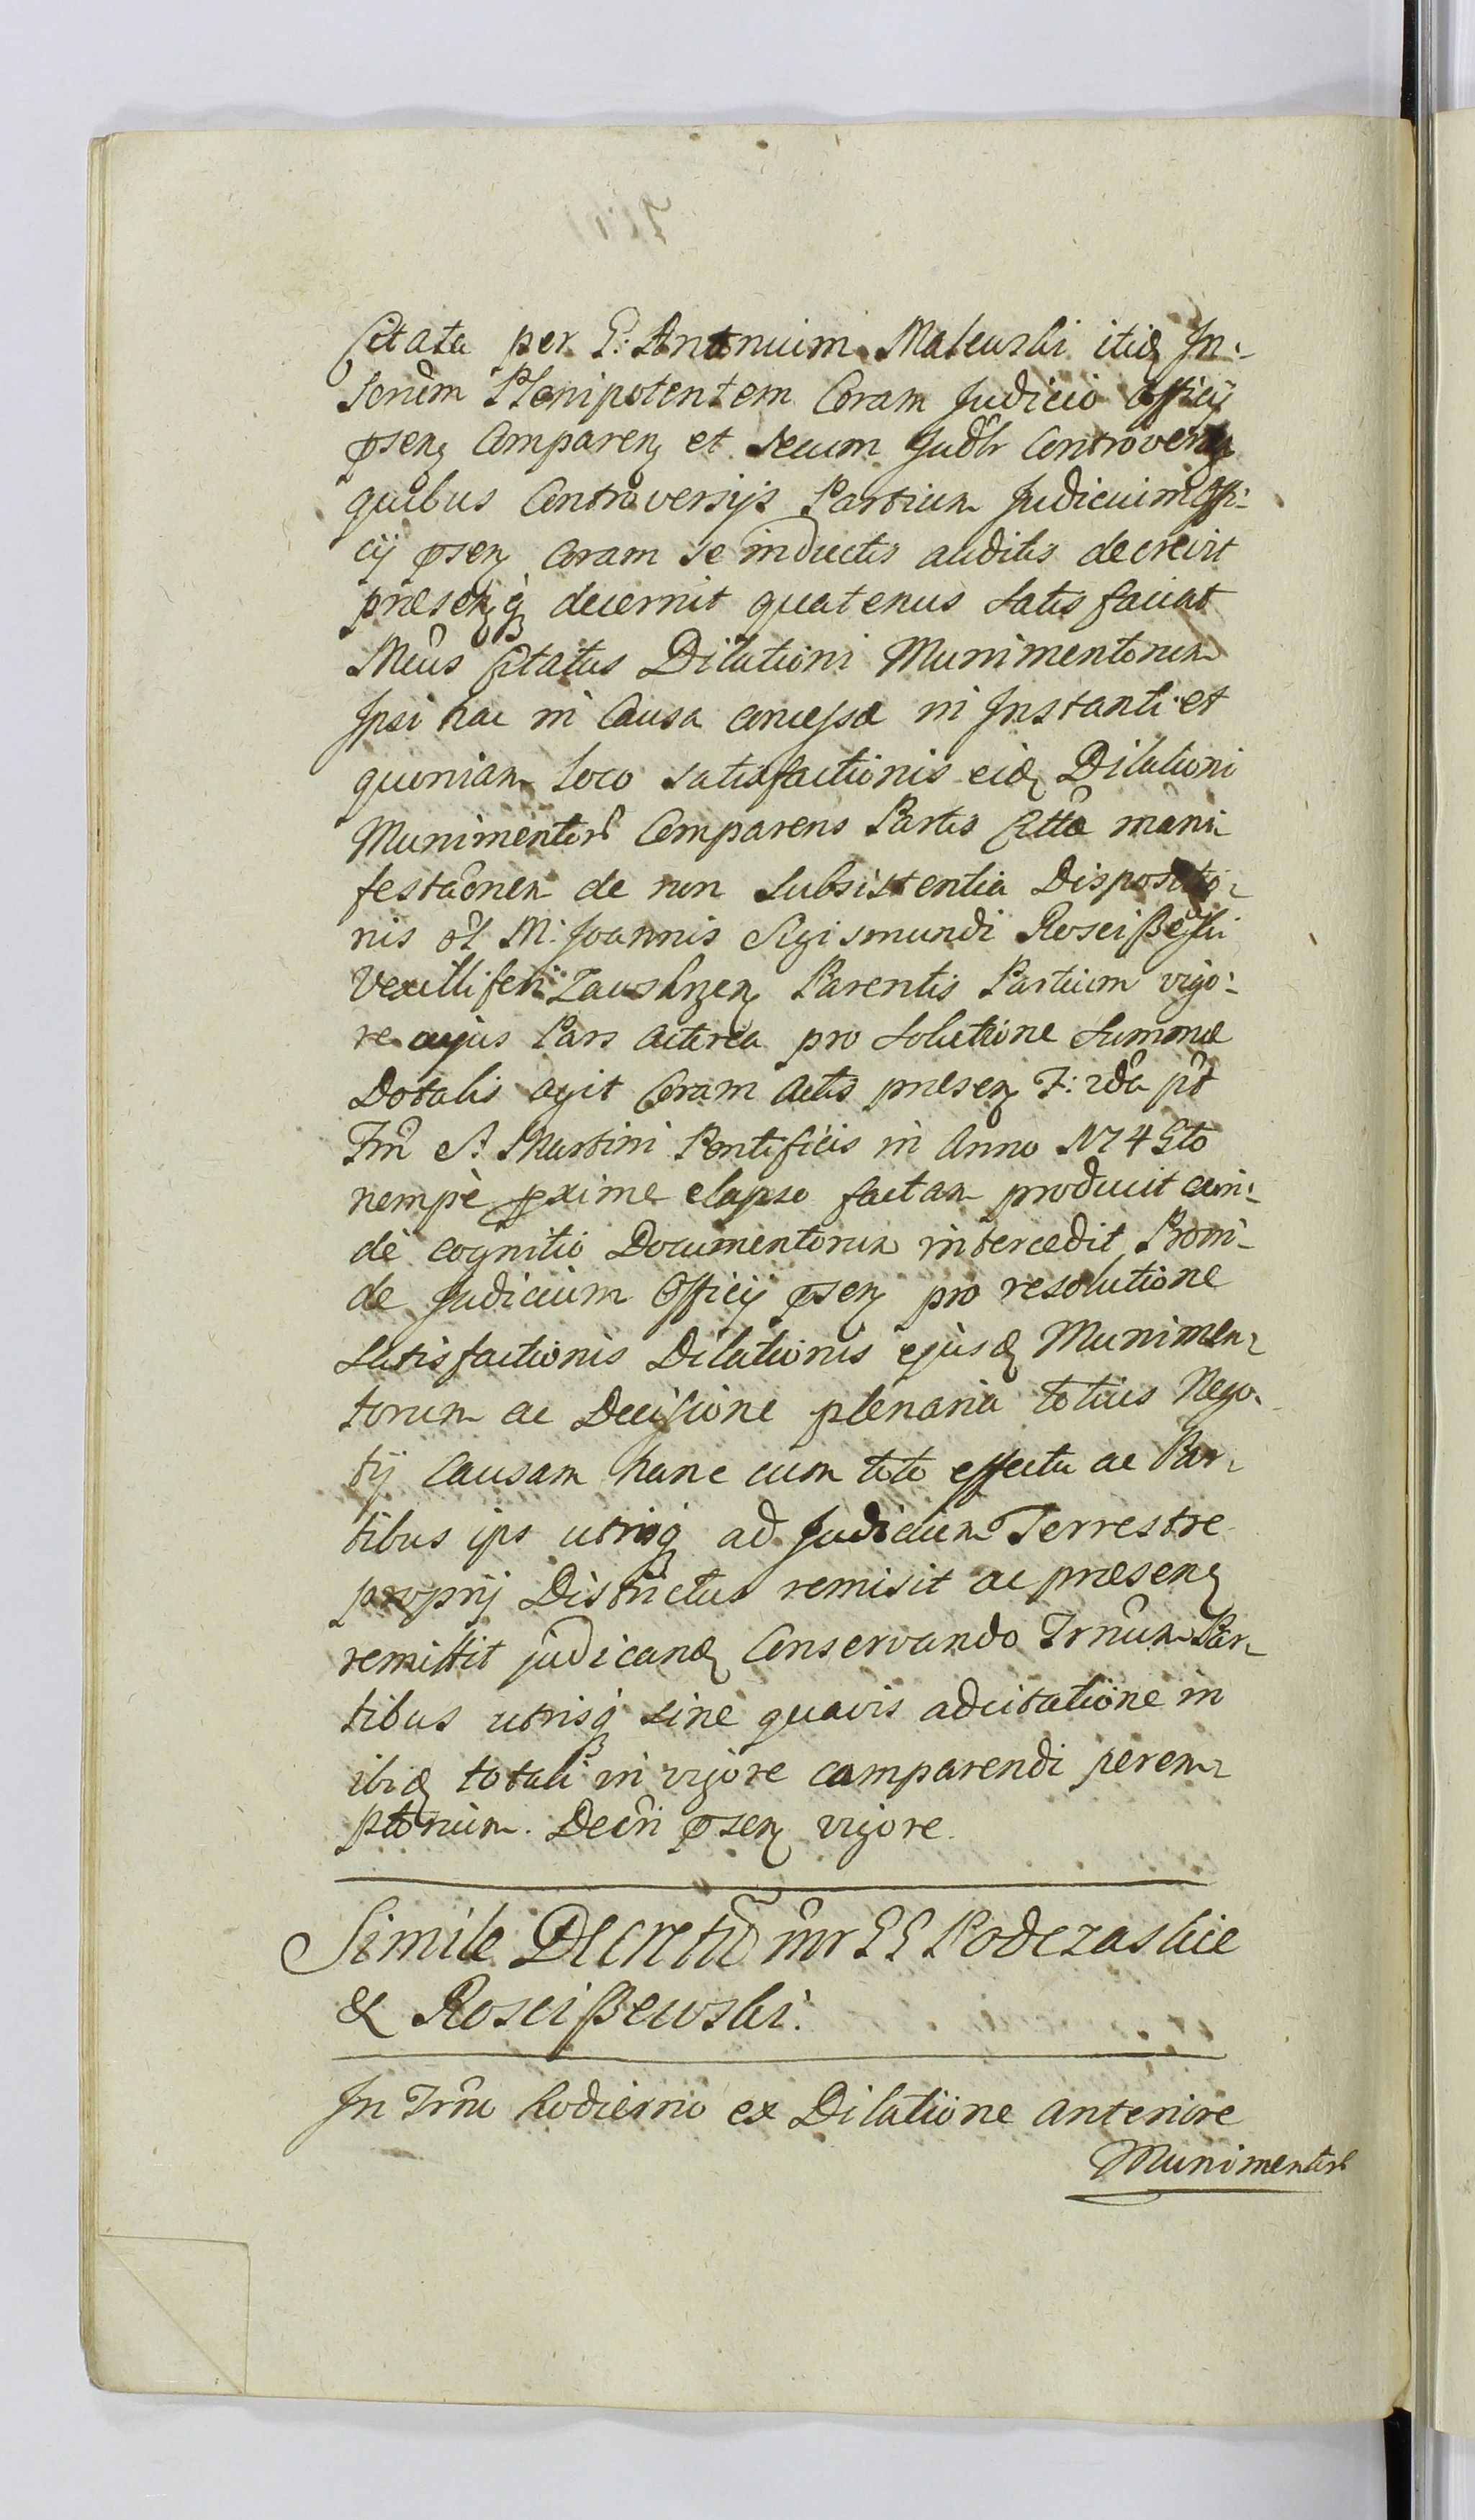 Citata per G: Antonium Maleuski itid In-
sonem Plenipotentem Coram Judicio Officij
psen Comparen et secum Judlr Controverten
quibus Controversijs Partium Judicium Offi-
cij psen Coram se inductis auditis decrevit
præsenq decernit quatenus satisfaciat
Mcus Citatus Dilationi Munimentorum
Ipsi hac in Causa concessæ in Instanti et
quoniam loco satisfactionis eid Dilationi
Munimentor Comparens Partis Citta mani-
festaonem de non subsistentia Dispositio-
nis ol M: Joannis Sigismundi Roscißeski
Vexilliferi Zauskrzen Parentis Partium vigo-
re cujus Pars Actorea pro solutione summæ
Dotalis agit Coram Actis præsen F: 2da pt
Fm S. Martini Pontificis in Anno 1745to
nempè pxime elapso factam producit cui-
de cognitio Documentorum intercedit Proin-
de Judicium Officij psen pro resolutione
satisfactionis Dilationis ejusd Munimen-
torum ac Decisione plenaria totius Nego-
tij Causam hanc cum toto effectu ac Par-
tibus ips utrisq ad Judicium Terrestre
proprij Districtus remisit ac præsen
remittit judicand Conservando Trnum Par-
tibus utrisq sine quavis adcitatione in
ibid totali in vigore comparendi perem-
ptorium. Decri psen vigore.
Simile Decretu inr GG Podczaskie
& Roscißewski.
In Trno hodierno ex Dilatione anteriore
Munimentor